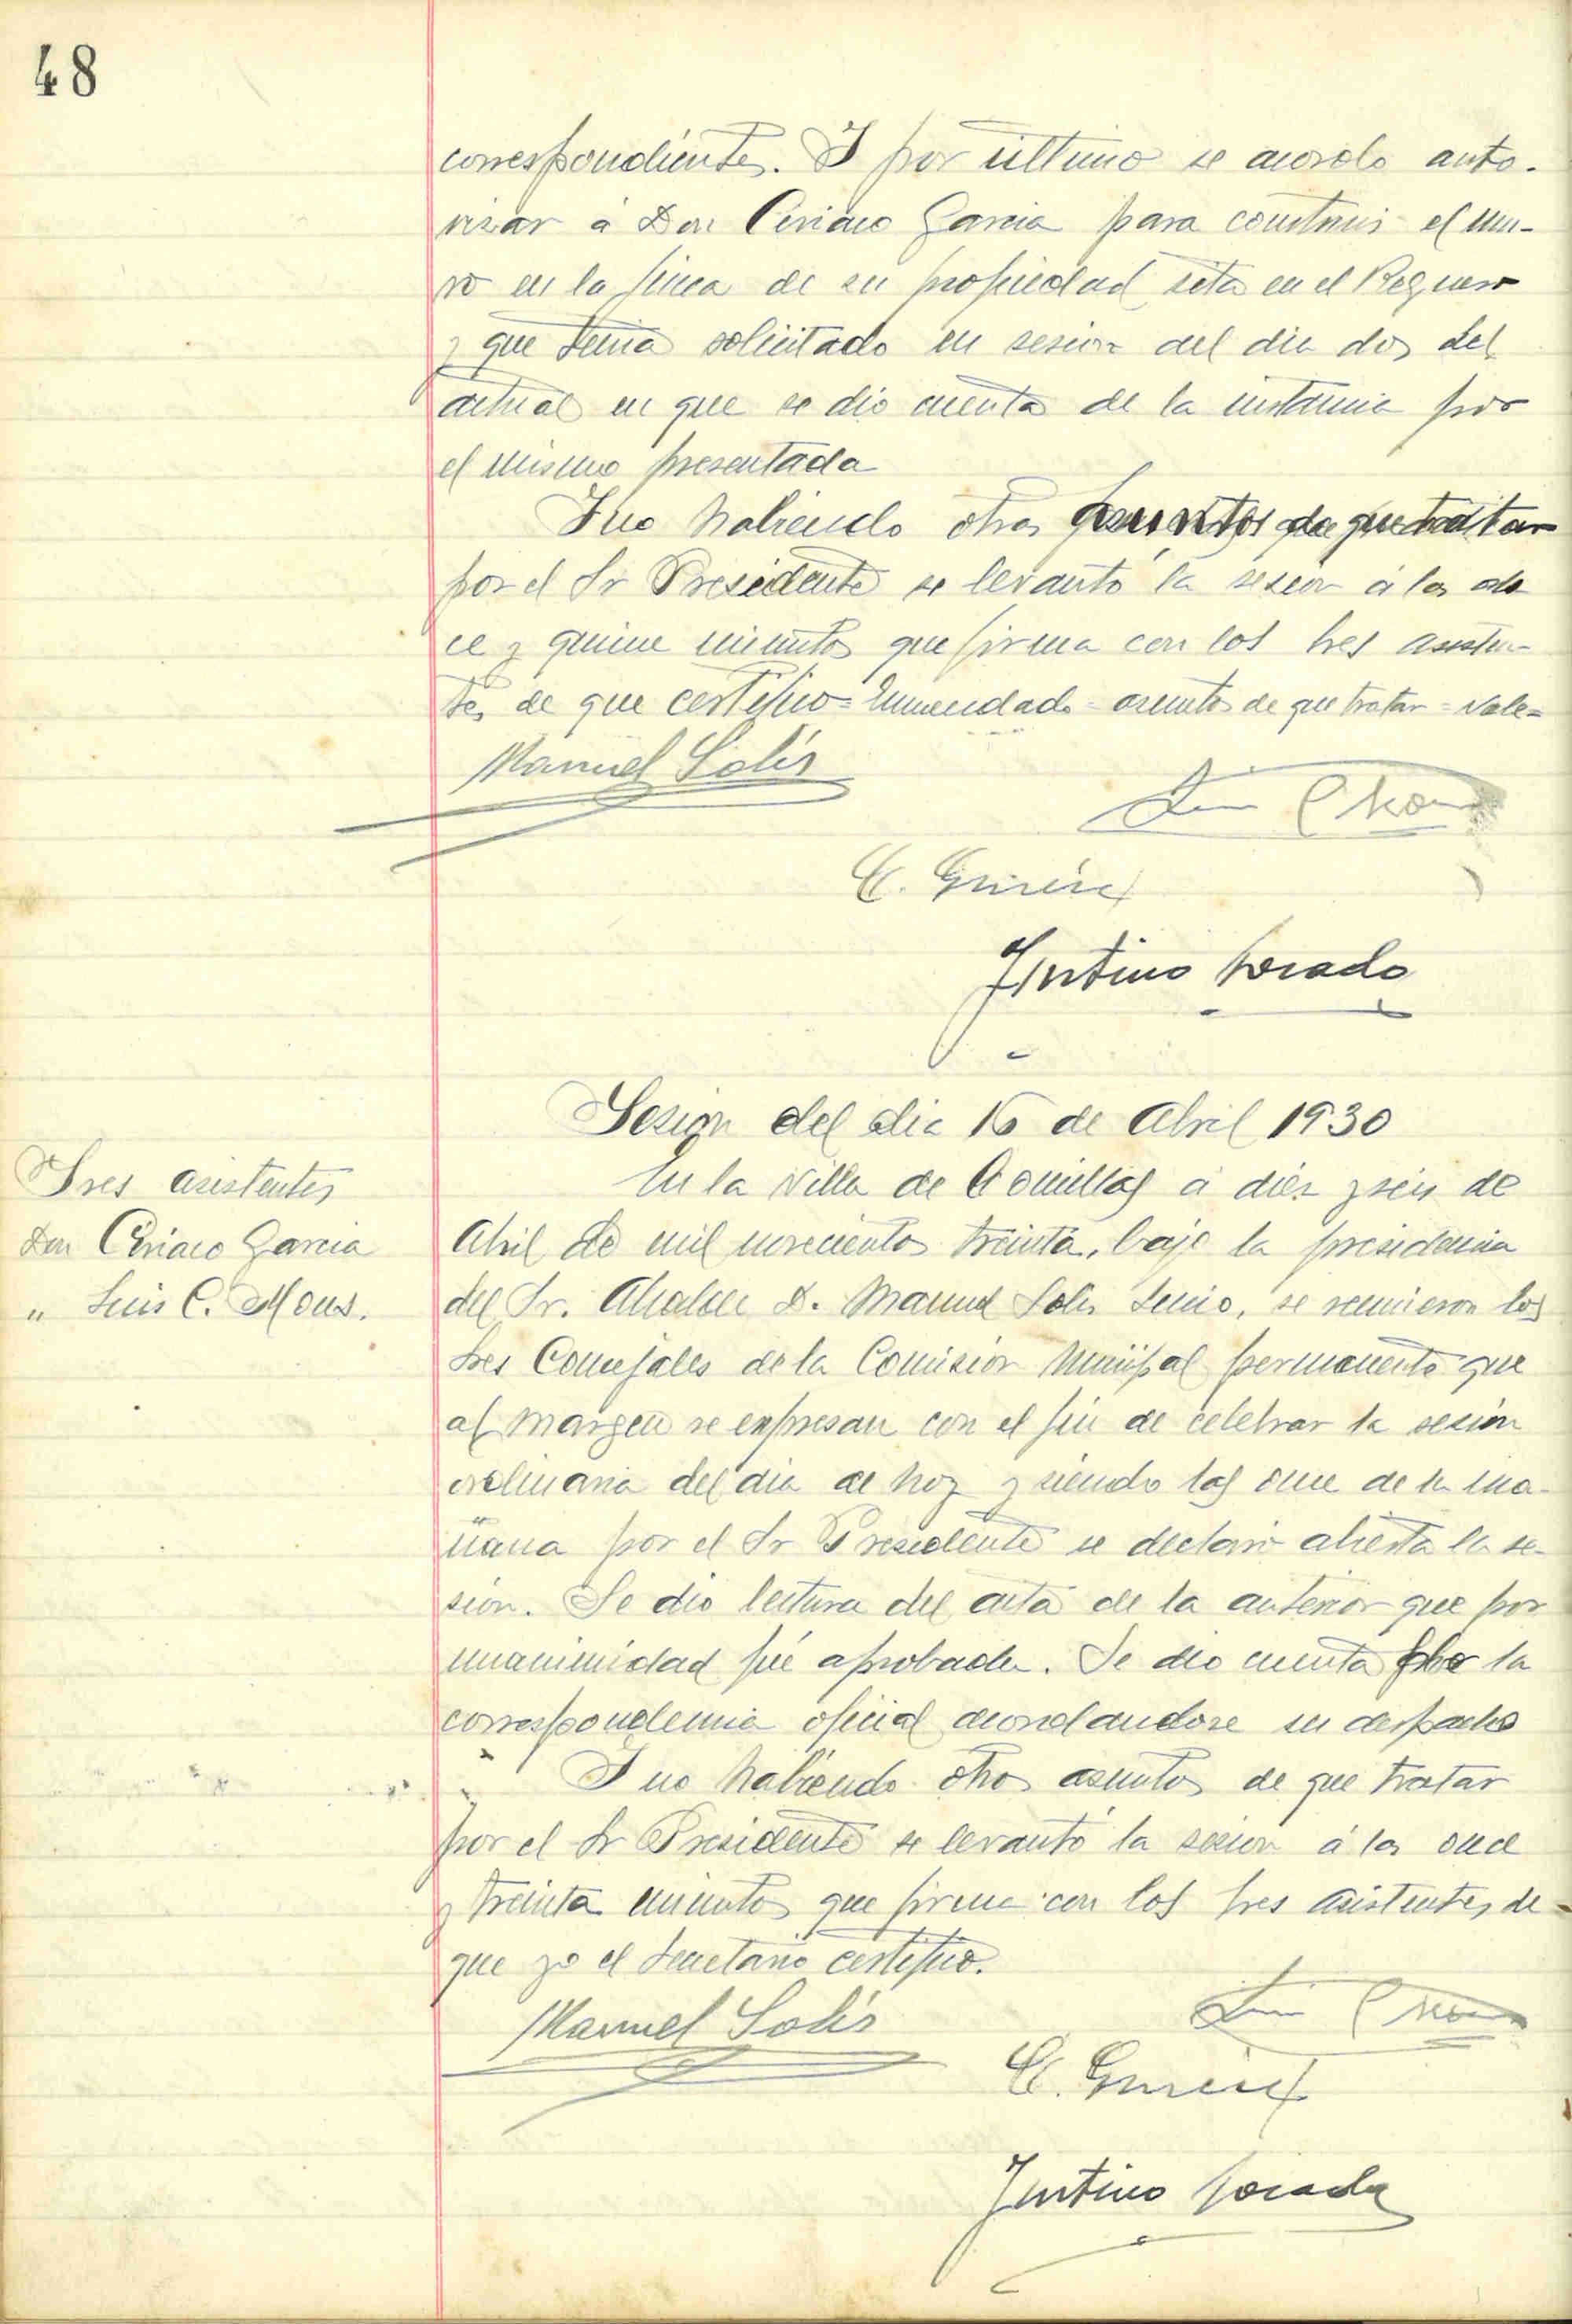 48
correspondiente. Y por último se acordo auto-
rizar á Don Ciriaco Garcia para construir el mu-
ro en la finca de su propiedad sita en el Reguero
y que tenia solicitado en sesion del dia dos del
actual en que se dio cuenta de la instancia por
el mismo presentada
Y no habiendo otros asuntos de que tratar
por el Sr Presidente se levantó la sesion á las do
ce y quince minutos que firma con los Sres asisten-
tes de que certifico = Enmendado = asuntos de que tratar = Vale =
Manuel Solís
Luis C Mons
C. García
Justino Posada
Sesion del dia 16 de Abril 1930
Sres asistentes
Don Ciriaco Garcia
" Luis C. Mons.
En la Villa de Comillas á diez y seis de
Abril de mil novecientos treinta, bajo la presidencia
del Sr. Alcalde D. Manuel Solis, se reunieron los
Sres Concejales de la Comisión Municipal permanente que
al margen se expresan con el fin de celebrar la sesión
ordinaria del dia de hoy y siendo las once de la ma-
ñana por el Sr Presidente se declaró abierta la se-
sion. Se dio lectura del acta de la anterior que por
unanimidad fué aprobada. Se dio cuenta de la
correspondencia oficial acordandose su despacho
Y no habiendo otros asuntos de que tratar
por el Sr Presidente se levantó la sesion á las once
y treinta minutos que firma con los Sres asistentes de
que yo el Secretario certifico.
Manuel Solís
Luis C Mons
C. García
Justino Posada